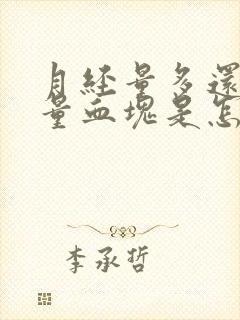 月经量多還
量血塊是怎
李承哲